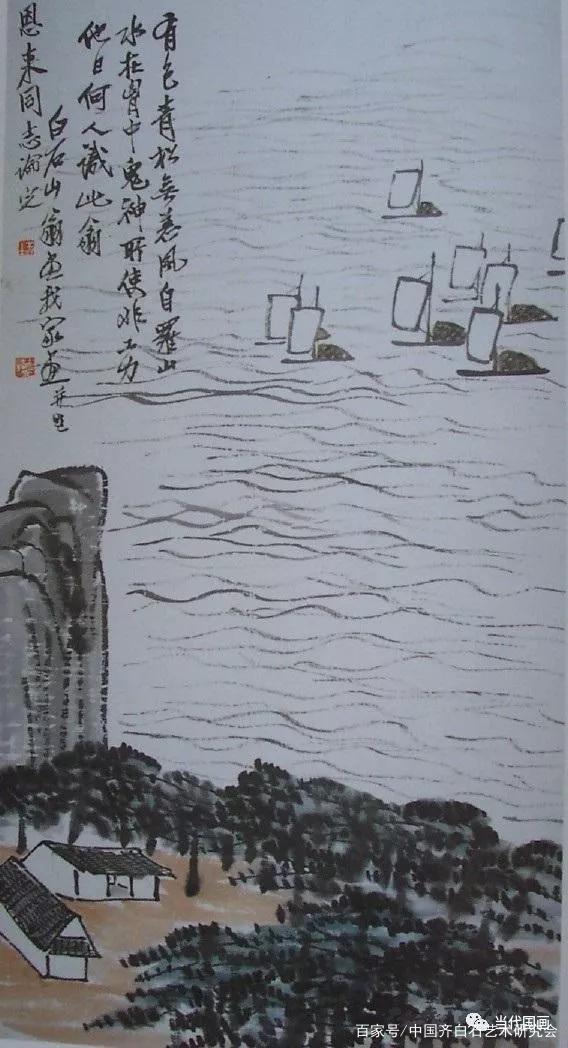 有色青松無恙風自羅山
水在胷中鬼神所使非工力
他日何人識此翁
白石山翁畫我家畫并題
恩来同志論定
当代国画
百家号/中国齐白石艺术研究会